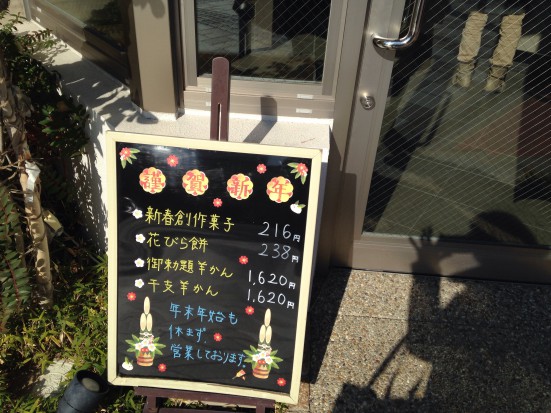 謹賀新年
新春創作菓子 216円
花びら餅 238円
御勅題羊かん 1,620円
干支羊かん 1,620円
年末年始も
休まず
営業しております